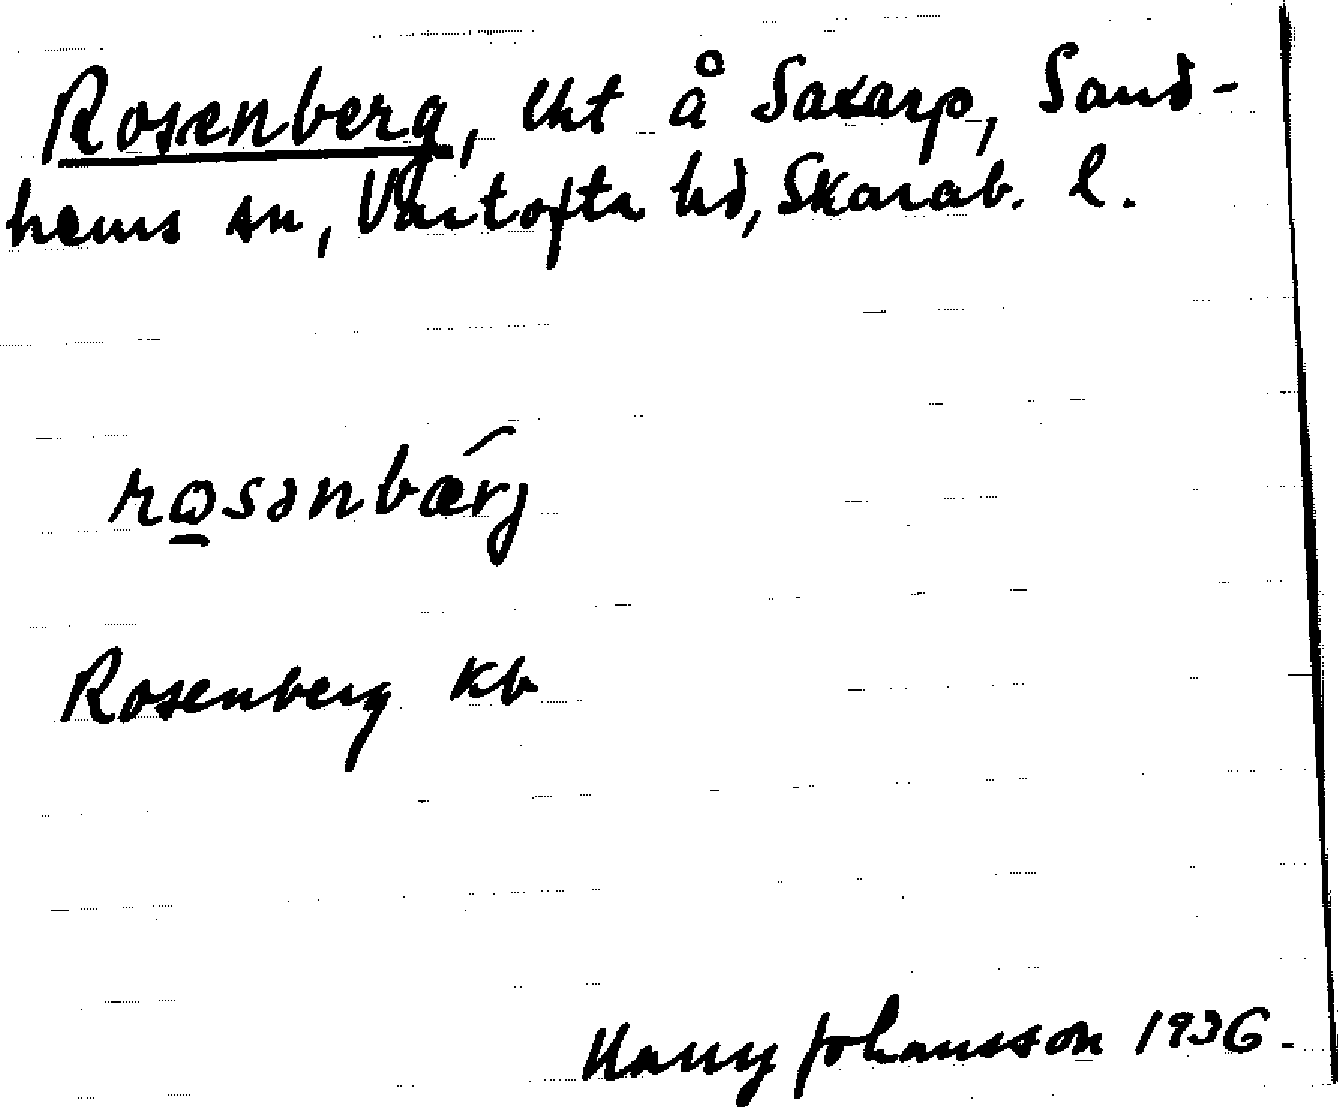 Rosenberg, lht å Saxarp, Sand-
hems sn, Vartofta hd, Skarab. l.
rosənbærj
Rosenberg kb
Harry Johansson 1936.